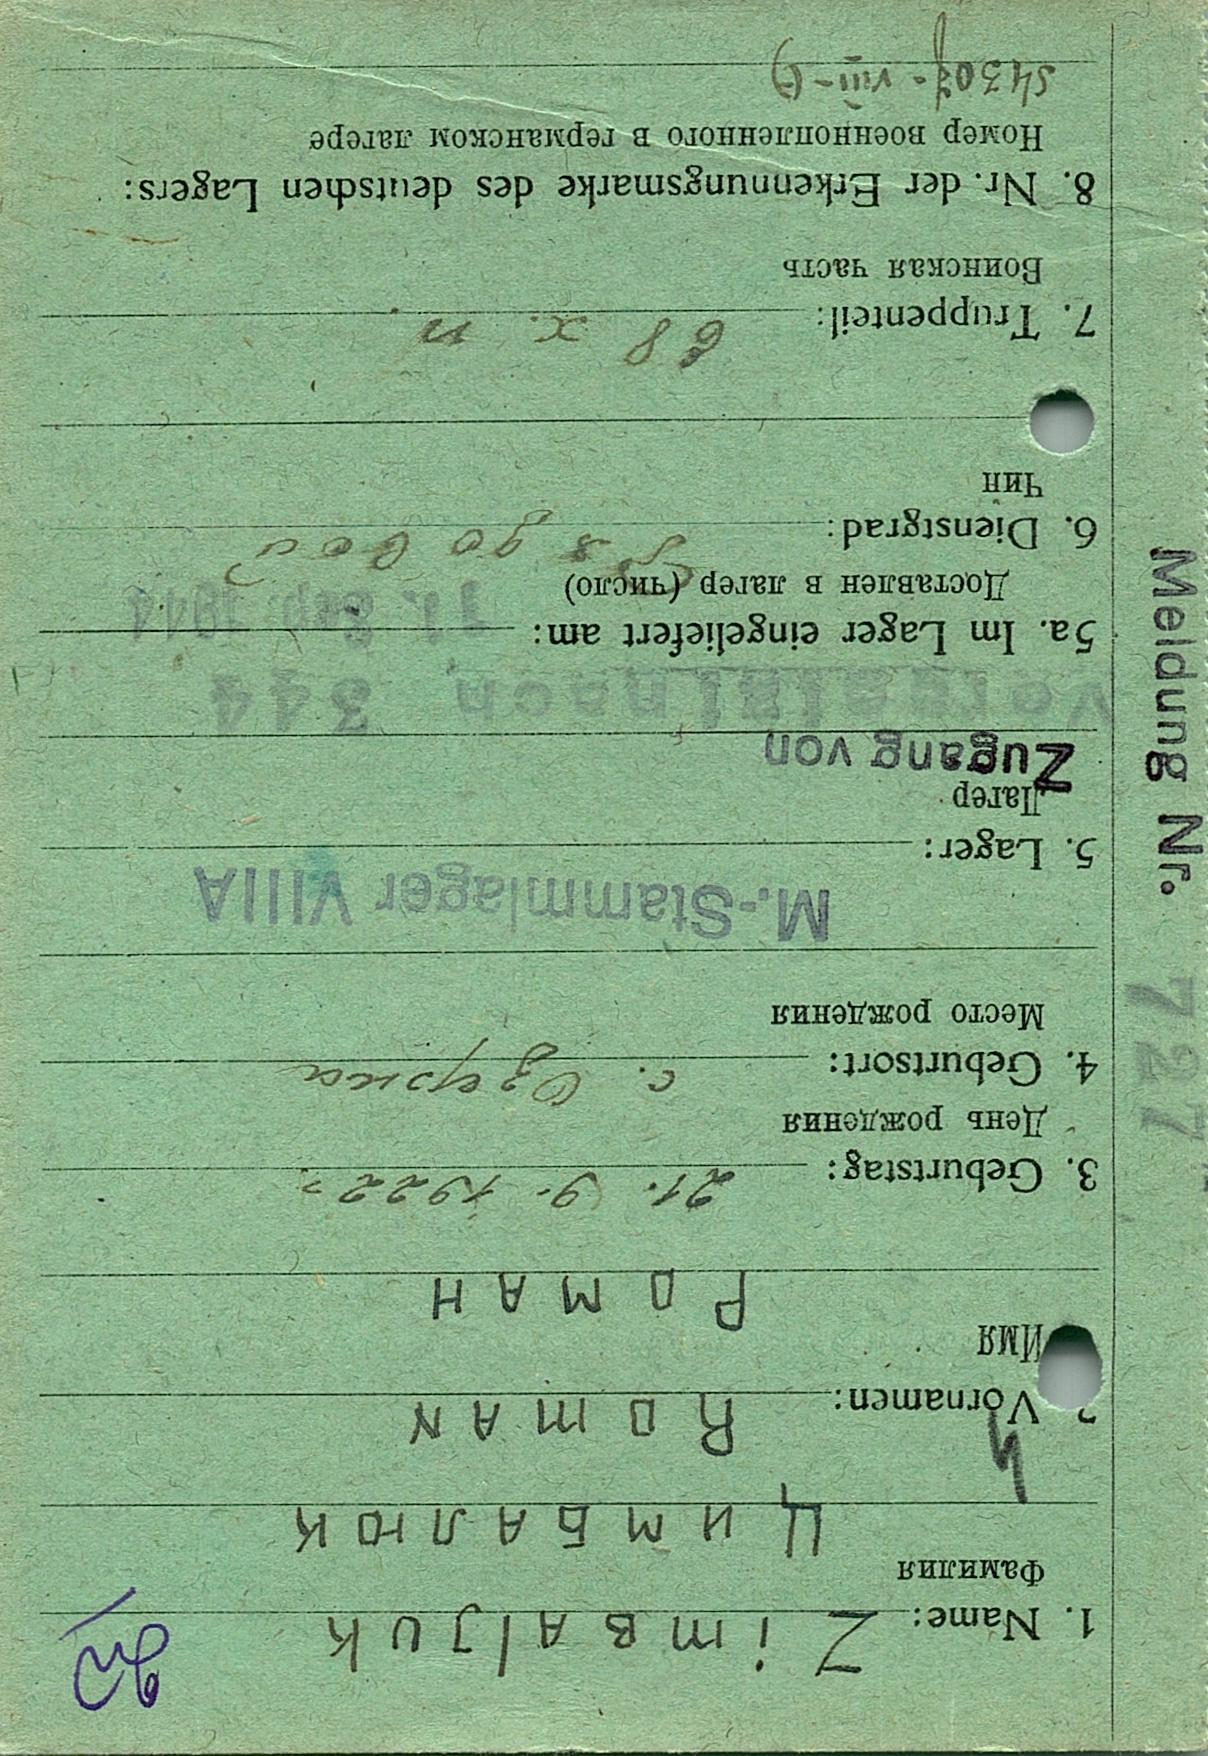 1. Name: Zimbaljuk
Фамилия
Цимбалюк
Vornamen: Roman
Имя
Роман
3. Geburtstag: 21. 9. 1922 г
День рождения
4. Geburtsort: с. Озерна
Место рождения
M.-Stammlager VIIIA
5. Lager:
Лагер
Zugang von
344
5a. Im Lager eingeliefert am: 11. Sep. 1944
Доставлен в лагер (число)
6. Dienstgrad: Рядовой
Чин
7. Truppenteil: 68 х. п.
Воинская часть
8. Nr. der Erkennungsmarke des deutschen Lagers:
Номер военнопленного в германском лагере
Meldung Nr. 727